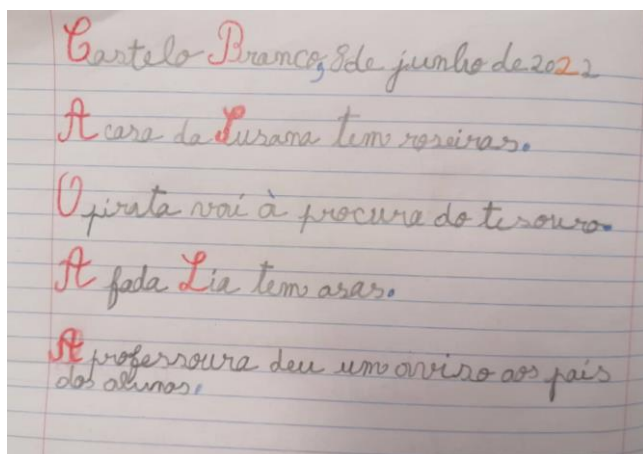 Castelo Branco, 8 de junho de 2022
A casa da Susana tem roseiras.
O pirata vai à procura do tesouro.
A fada Lia tem asas.
A professoura deu um aviso aos pais
dos alunos.